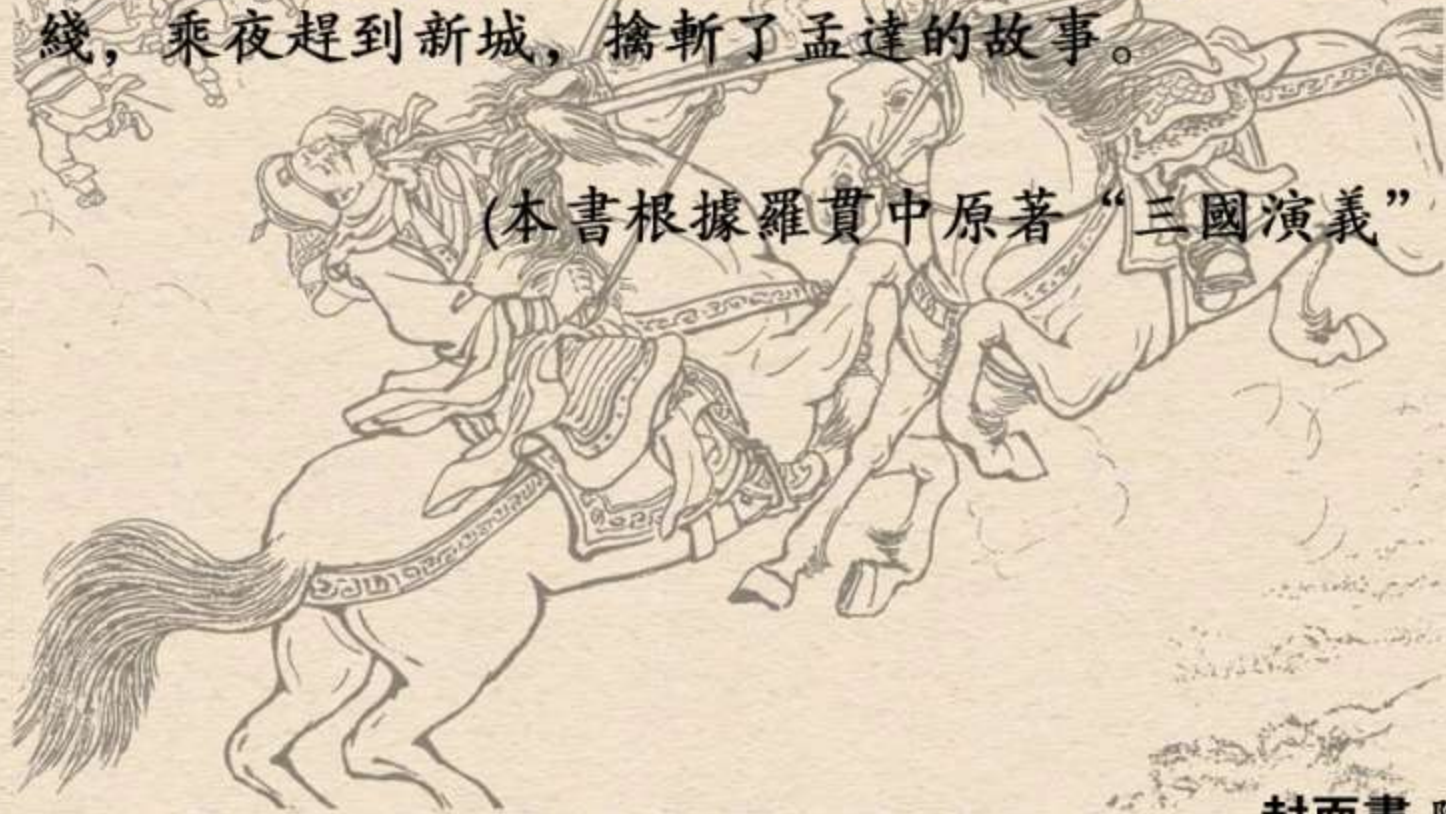 綫，乘夜趕到新城，擒斬了孟達的故事。
(本書根據羅貫中原著“三國演義”
封面畫